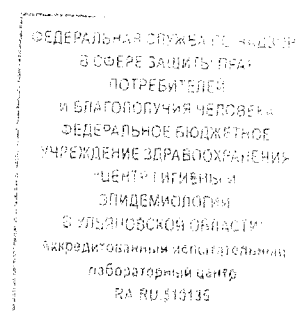 ФЕДЕРАЛЬНАЯ СЛУЖБА ПО НАДЗОРУ
В СФЕРЕ ЗАЩИТЫ ПРАВ
ПОТРЕБИТЕЛЕЙ
И БЛАГОПОЛУЧИЯ ЧЕЛОВЕКА
ФЕДЕРАЛЬНОЕ БЮДЖЕТНОЕ
УЧРЕЖДЕНИЕ ЗДРАВООХРАНЕНИЯ
"ЦЕНТР ГИГИЕНЫ И
ЭПИДЕМИОЛОГИИ
В УЛЬЯНОВСКОЙ ОБЛАСТИ"
Аккредитованный испытательный
лабораторный центр
RA.RU.510135